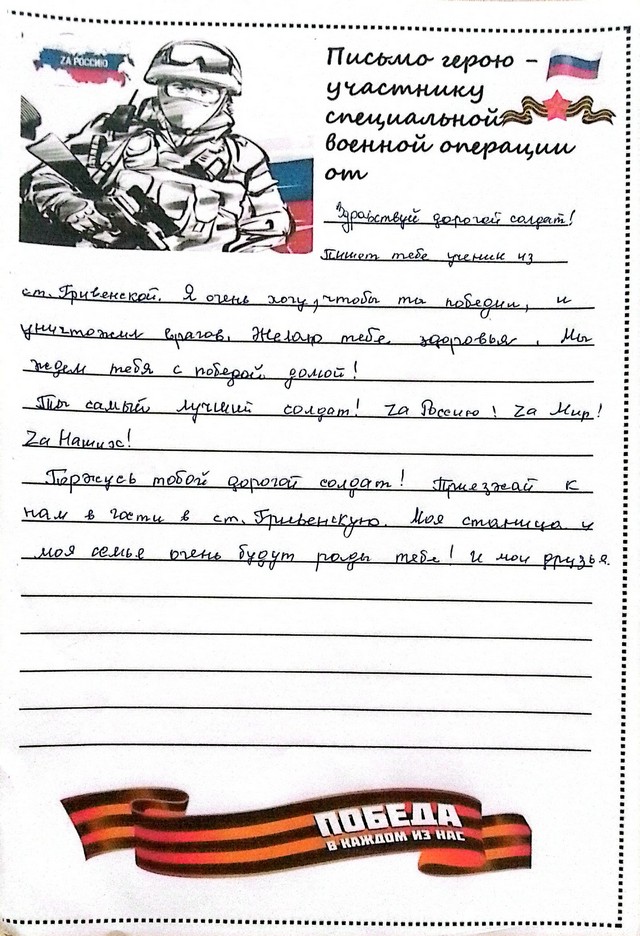 ZА РОССИЮ
Письмо герою –
участнику
специальной
военной операции
от
Здравствуй дорогой солдат!
Пишет тебе ученик из
ст. Гривенской. Я очень хочу, чтобы ты победил, и
уничтожил врагов. Желаю тебе здоровья. Мы
ждем тебя с победой домой!
Ты самый лучший солдат! Zа Россию! Zа Мир!
Zа Наших!
Горжусь тобой дорогой солдат! Приезжай к
нам в гости в ст. Гривенскую. Моя станица и
моя семья очень будут рады тебе! И мои друзья.
ПОБЕДА
В КАЖДОМ ИЗ НАС